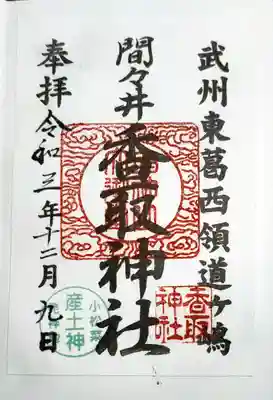 武州東葛西領道ヶ嶋
間々井
香取神社
奉拝
令和三年十二月九日
香取
神社
小松菜
産土神